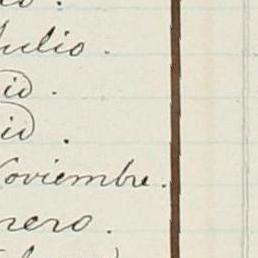 Julio.
id.
id.
Noviembre.
nero.